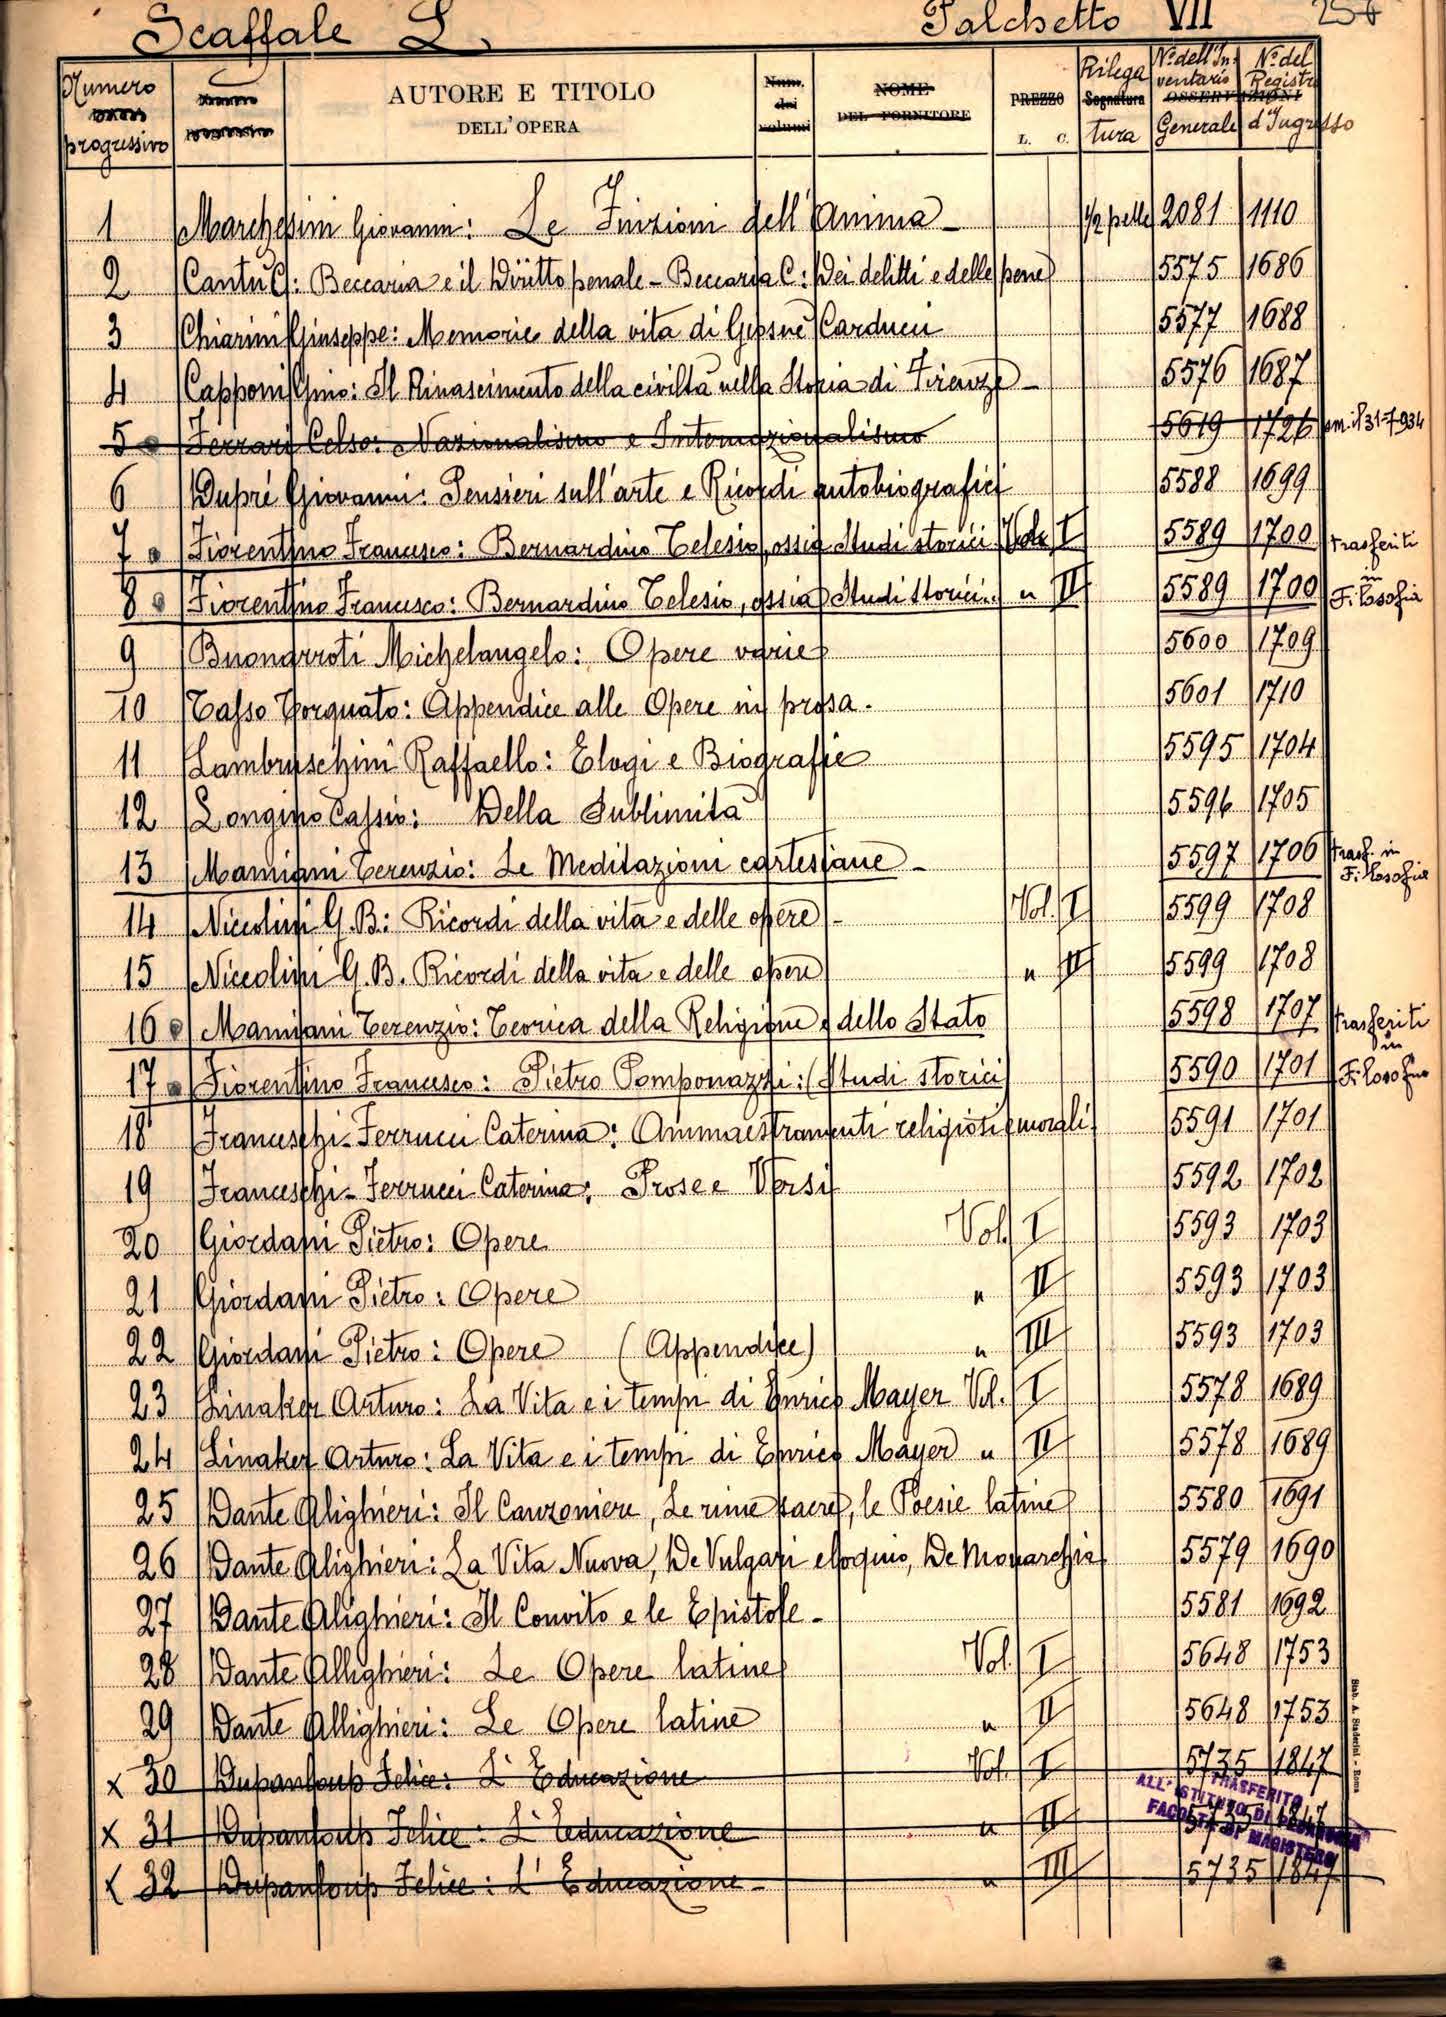 Scaffale L. Palchetto VII
Numero progressivo AUTORE E TITOLO DELL'OPERA Num. dei volumi NOME DEL FORNITORE PREZZO L. C. Rilegatura Segnatura N.º dell'Inventario Generale OSSERVAZIONI N.º del Registro d'Ingresso
1 Marchesini Giovanni: Le Finzioni dell'Anima - 1/2 pelle 2081 1110
2 Cantù C: Beccaria e il Diritto penale - Beccaria C: Dei delitti e delle pene 5575 1686
3 Chiarini Giuseppe: Memorie della vita di Giosuè Carducci 5577 1688
4 Capponi Gino: Il Rinascimento della civiltà nella Storia di Firenze - 5576 1687
5 Ferrari Celso: Nazionalismo e Internazionalismo 5619 1726 31-7-934
6 Dupré Giovanni: Pensieri sull'arte e Ricordi autobiografici 5588 1699
7 Fiorentino Francesco: Bernardino Telesio, ossia Studi storici Vol. I 5589 1700 trasferiti
8 Fiorentino Francesco: Bernardino Telesio, ossia Studi storici.. " II 5589 1700 in Filosofia
9 Buonarroti Michelangelo: Opere varie 5600 1709
10 Tasso Torquato: Appendice alle Opere in prosa. 5601 1710
11 Lambruschini Raffaello: Elogi e Biografie 5595 1704
12 Longino Cassio: Della Sublimità 5596 1705
13 Mamiani Terenzio: Le Meditazioni cartesiane - 5597 1706 trasf. in Filosofia
14 Niccolini G.B.: Ricordi della vita e delle opere - Vol. I 5599 1708
15 Niccolini G.B. Ricordi della vita e delle opere " II 5599 1708
16 Mamiani Terenzio: Teorica della Religione e dello Stato 5598 1707 trasferiti
17 Fiorentino Francesco: Pietro Pomponazzi: (Studi storici) 5590 1701 in Filosofia
18 Franceschi-Ferrucci Caterina: Ammaestramenti religiosi e morali. 5591 1701
19 Franceschi-Ferrucci Caterina: Prose e Versi 5592 1702
20 Giordani Pietro: Opere Vol. I 5593 1703
21 Giordani Pietro: Opere " II 5593 1703
22 Giordani Pietro: Opere (Appendice) " III 5593 1703
23 Linaker Arturo: La Vita e i tempi di Enrico Mayer Vol. I 5578 1689
24 Linaker Arturo: La Vita e i tempi di Enrico Mayer " II 5578 1689
25 Dante Alighieri: Il Canzoniere, Le rime sacre, le Poesie latine 5580 1691
26 Dante Alighieri: La Vita Nuova, De Vulgari eloquio, De Monarchia 5579 1690
27 Dante Alighieri: Il Convito e le Epistole - 5581 1692
28 Dante Allighieri: Le Opere latine Vol. I 5648 1753
29 Dante Allighieri: Le Opere latine " II 5648 1753
x 30 Dupanloup Felice: L'Educazione Vol. I 5735 1847
x 31 Dupanloup Felice: L'Educazione " II 5735 1847
x 32 Dupanloup Felice: L'Educazione - " III 5735 1847
TRASFERITO
ALL'ISTITUTO DI PEDAGOGIA
FACOLTÀ DI MAGISTERO
Stab. A. Staderini - Roma